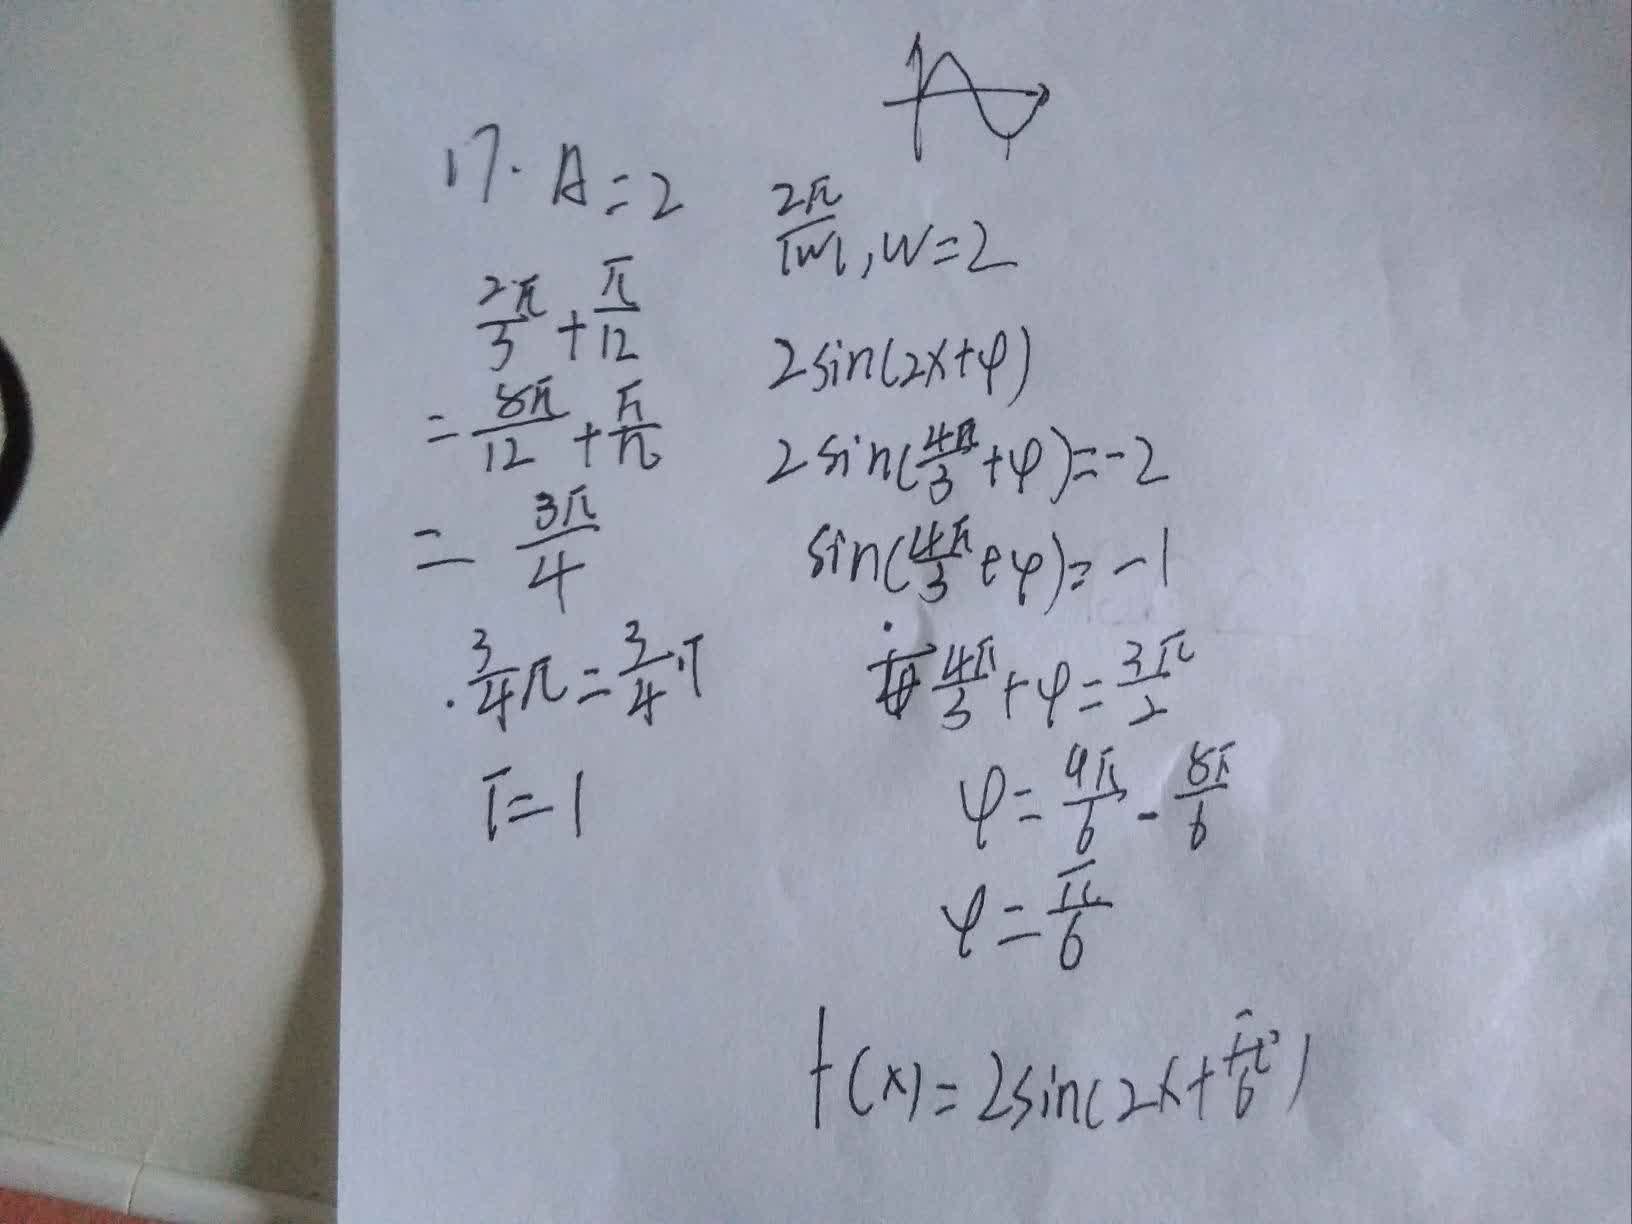 17. A=2
2π/3 + π/12
= 8π/12 + π/12
= 3π/4
3/4 π = 3/4 T
T=1
2π/|w|, w=2
2sin(2x+φ)
2sin(4π/3+φ)=-2
sin(4π/3+φ)=-1
4π/3+φ=3π/2
φ=9π/6-8π/6
φ=π/6
f(x)=2sin(2x+π/6)